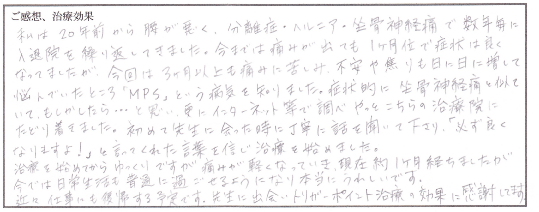 ご感想、治療効果
私は20年前から腰が悪く、分離症・ヘルニア・坐骨神経痛で数年毎に
入退院を繰り返してきました。今までは痛みが出ても1ヶ月位で症状は良く
なってきましたが、今回は3ヶ月以上も痛みに苦しみ、不安や焦りも日に日に増して
悩んでいたところ「MPS」という病気を知りました。症状的に坐骨神経痛と似て
いて、もしかしたら…と思い、更にインターネット等で調べやっとこちらの治療院に
たどり着きました。初めて先生に会った時に丁寧に話を聞いて下さり、「必ず良く
なりますよ!」と言ってくれた言葉を信じ治療を始めました。
治療を始めてからゆっくりですが痛みが軽くなっていき、現在約1ヶ月経ちましたが
今では日常生活も普通に過ごせるようになり本当にうれしいです。
近々仕事にも復帰する予定です。先生に出会い、トリガーポイント治療の効果に感謝してます。